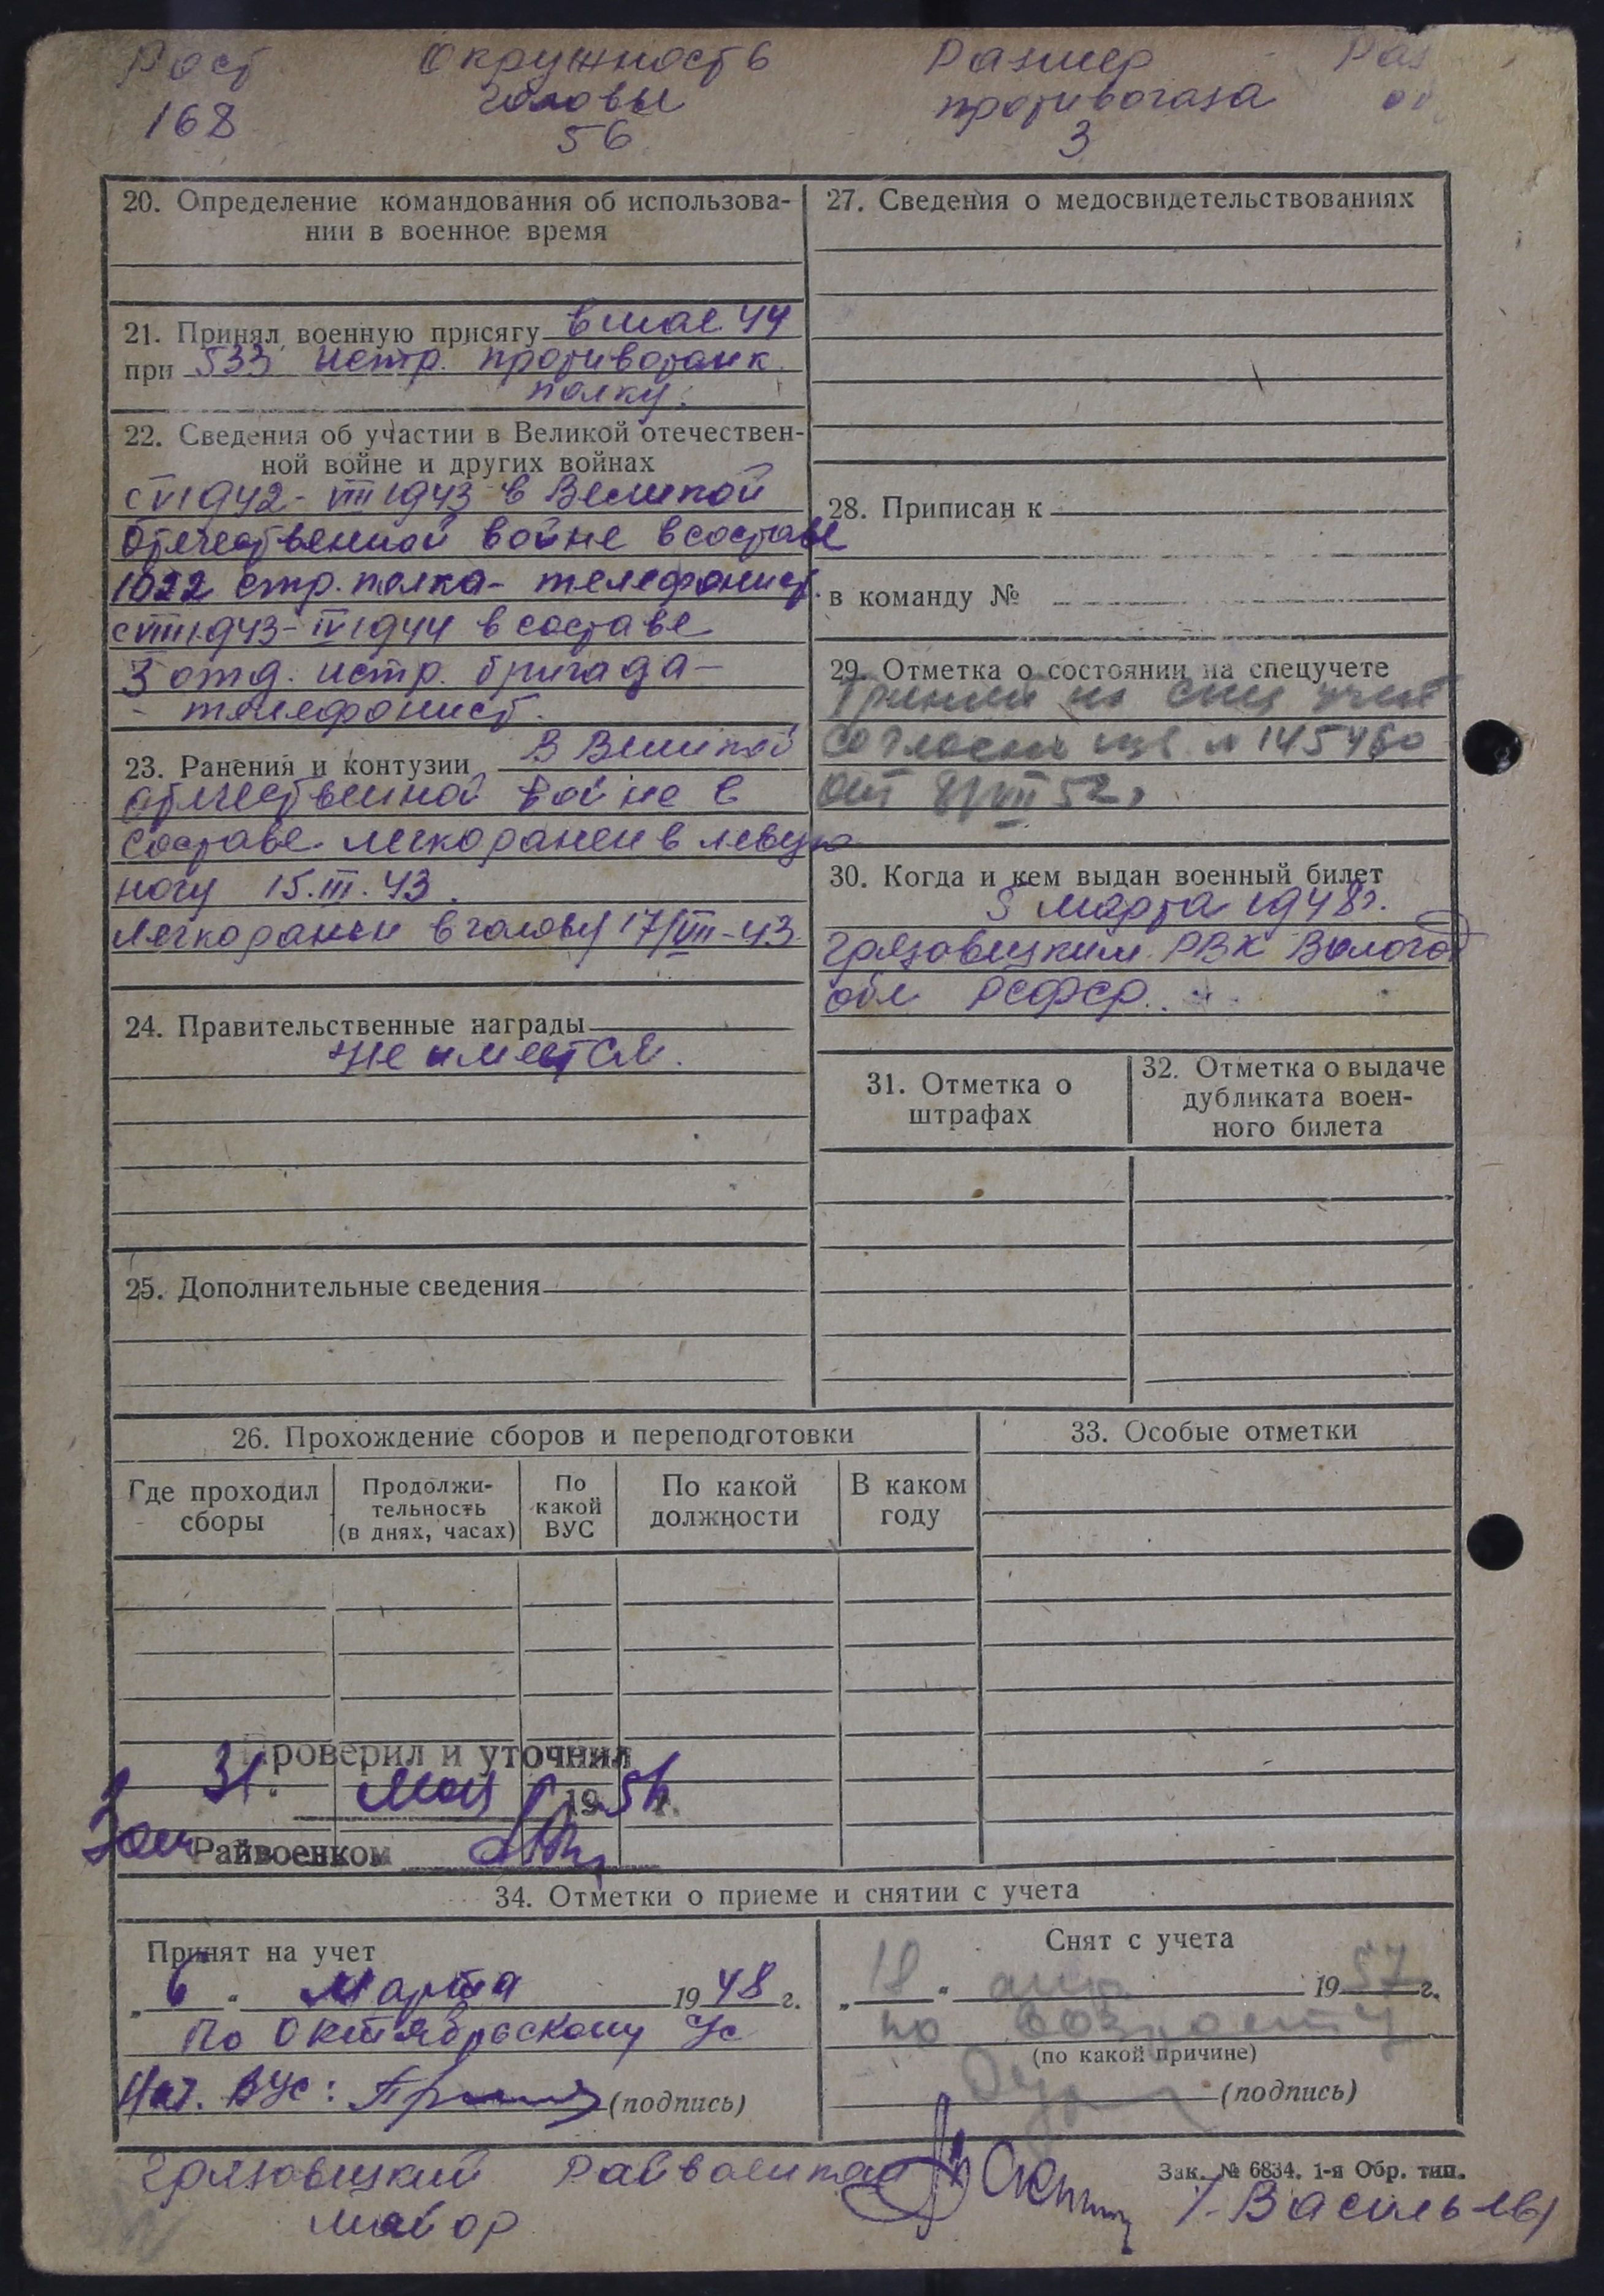 Рост Окружность Размер Раз
168 головы противогаза об
56 3
20. Определение командования об использова-
нии в военное время
21. Принял военную присягу в мае 44
при 533 истр. противотанк.
полку.
22. Сведения об участии в Великой отечествен-
ной войне и других войнах
с VI 1942 - VIII 1943 в Великой
Отечественной войне в составе
1022 стр. полка - телефонист.
с VIII 1943 - IV 1944 в составе
3 отд. истр. бригада -
- телефонист.
23. Ранения и контузии В Великой
отечественной войне в
составе легко ранен в левую
ногу 15.III.43.
Легко ранен в голову 17/VIII-43.
24. Правительственные награды
не имеется.
25. Дополнительные сведения
27. Сведения о медосвидетельствованиях
28. Приписан к
в команду №
29. Отметка о состоянии на спецучете
Принят на спец учет
согласно изв № 145460
от 8/VII 52г
30. Когда и кем выдан военный билет
5 марта 1948г.
Грязовецким РВК Вологод
обл РСФСР.
31. Отметка о
штрафах
32. Отметка о выдаче
дубликата воен-
ного билета
26. Прохождение сборов и переподготовки
Где проходил
сборы
Продолжи-
тельность
(в днях, часах)
По
какой
ВУС
По какой
должности
В каком
году
33. Особые отметки
Проверил и уточнил
31. Мая 1954 г.
Зам Райвоенком
34. Отметки о приеме и снятии с учета
Принят на учет
„ 6 “ Марта 1948 г.
по Октябрьскому УС
Нач. ВУС: (подпись)
Снят с учета
„ 18 “ 1957 г.
по возрасту
(по какой причине)
(подпись)
Грязовецкий Райвоенком
майор
Зак. № 6834. 1-я Обр. тип.
/-Васильев/